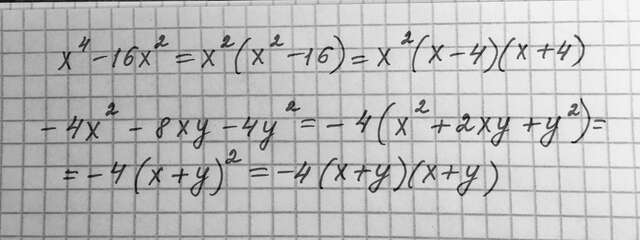 x⁴ - 16x² = x²(x² - 16) = x²(x - 4)(x + 4)
- 4x² - 8xy - 4y² = - 4(x² + 2xy + y²) =
= - 4(x + y)² = - 4(x + y)(x + y)